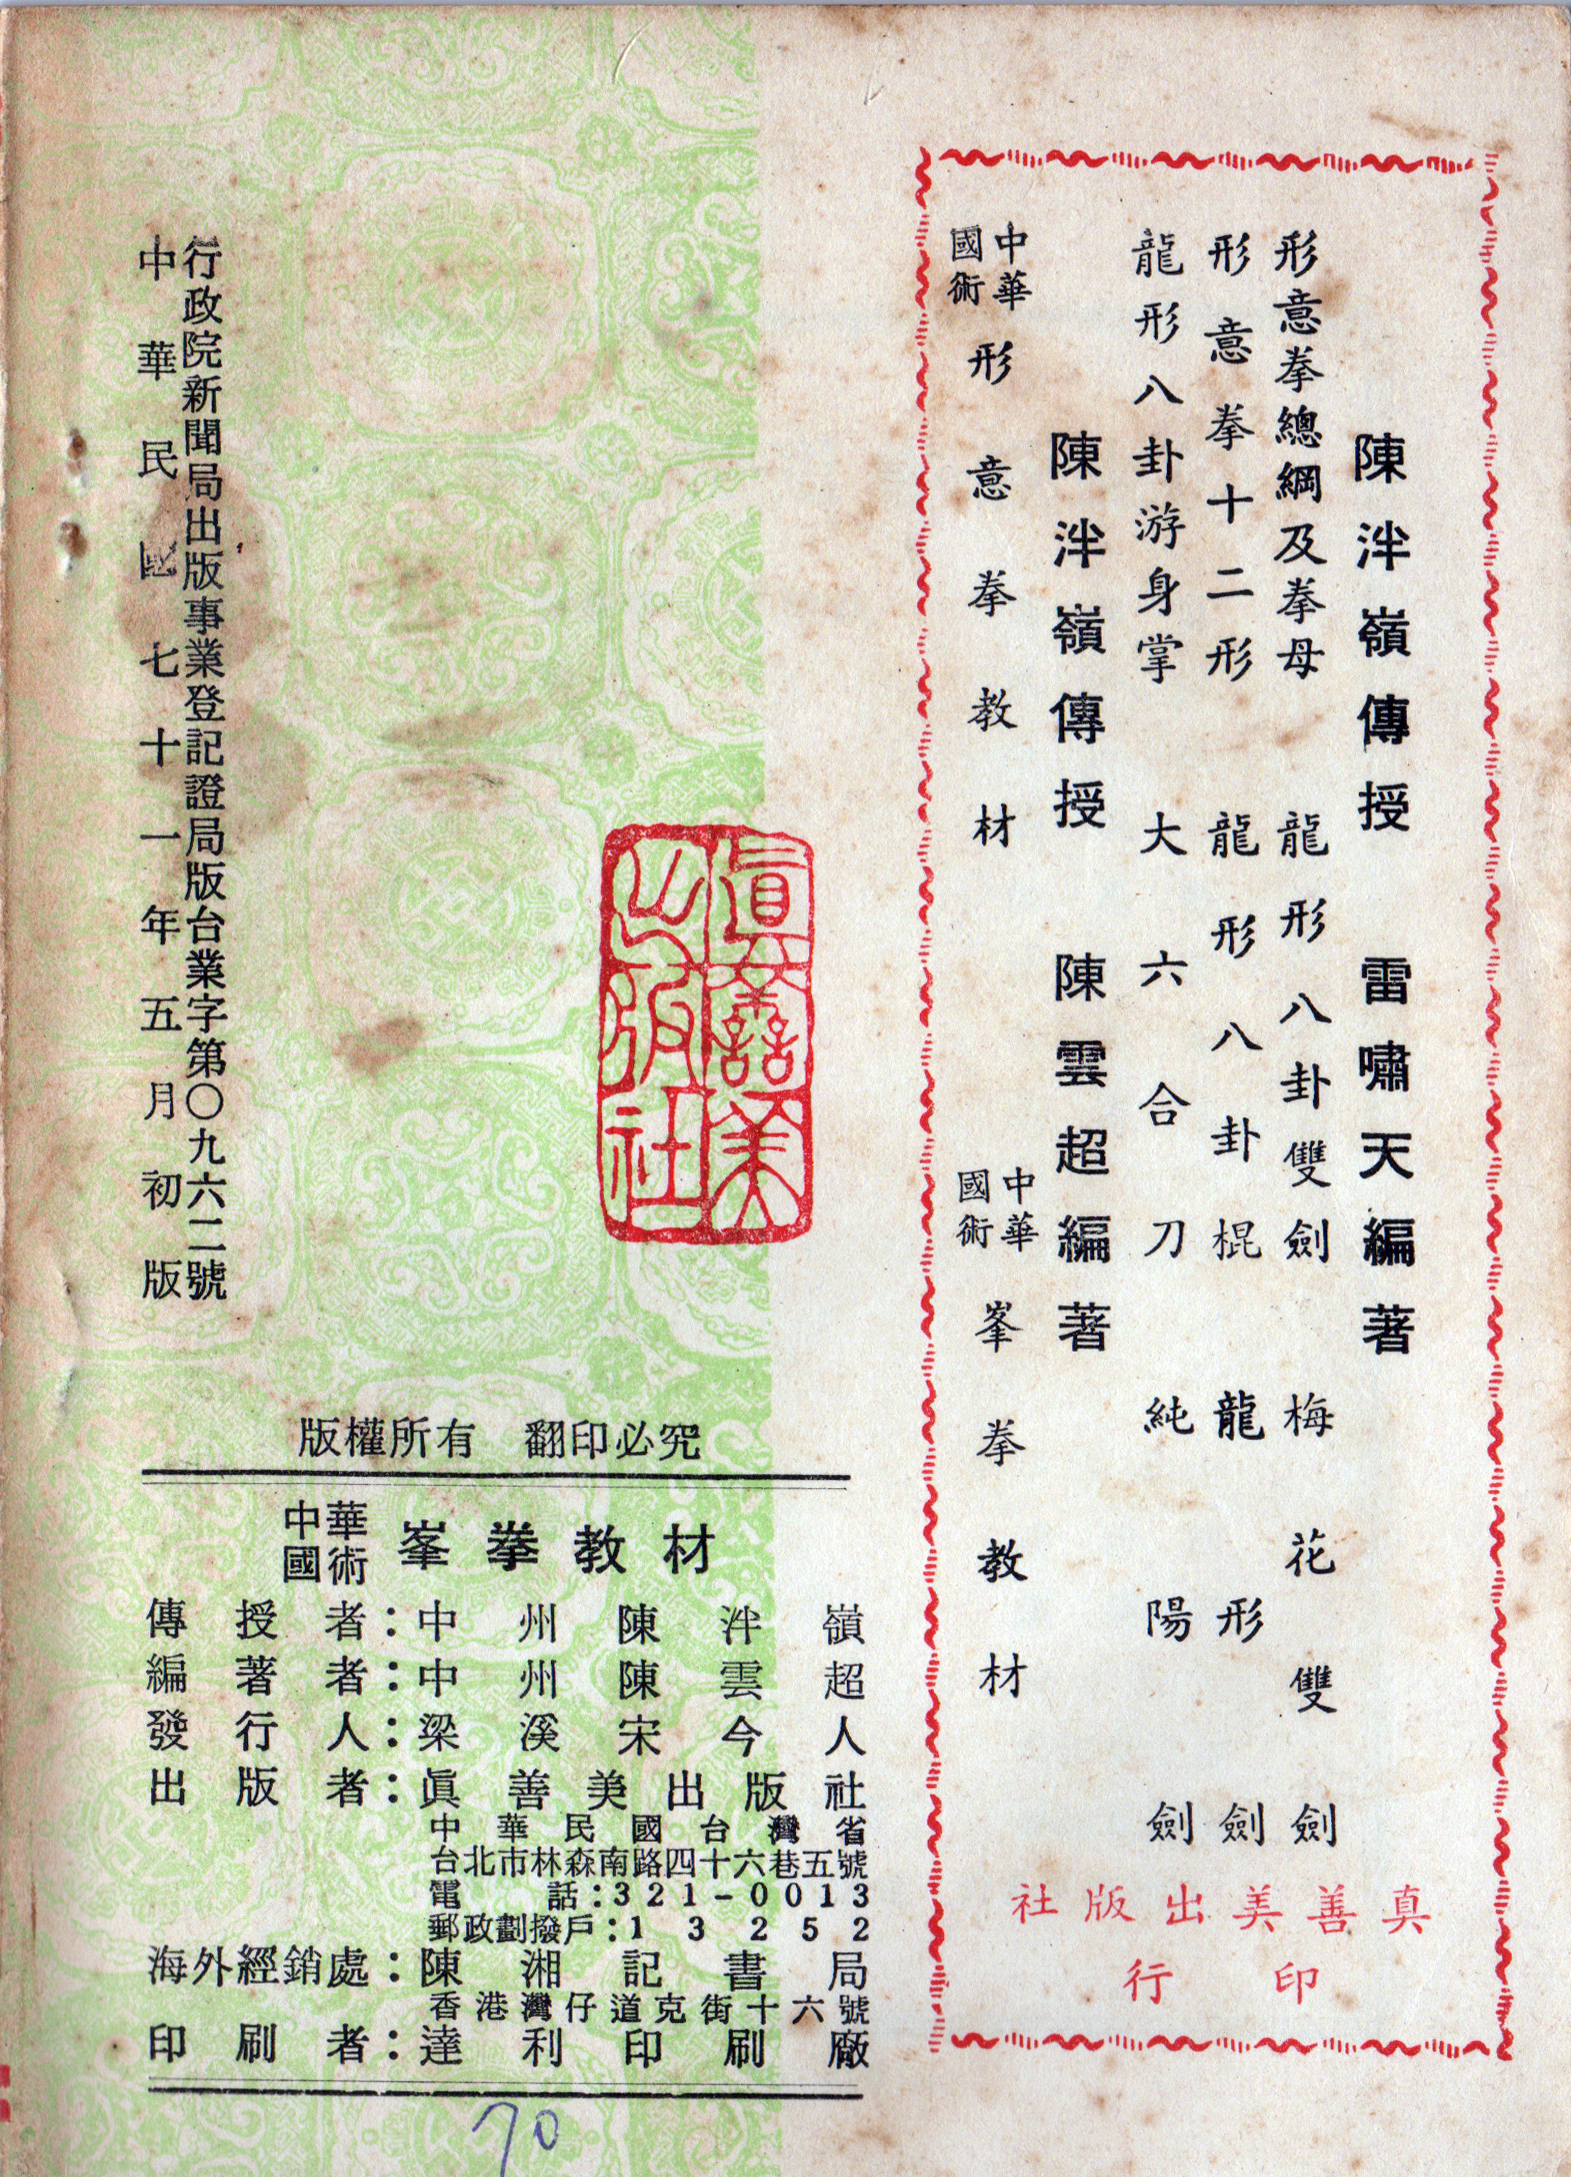 陳泮嶺傳授　雷嘯天編著
形意拳總綱及拳母　龍形八卦雙劍　梅花雙劍
形意拳十二形　龍形八卦棍　龍形劍
龍形八卦游身掌　大六合刀　純陽劍
陳泮嶺傳授　陳雲超編著
中華國術　形意拳教材　中華國術　峯拳教材
真善美出版社
印行
眞善美出版社
行政院新聞局出版事業登記證局版台業字第〇九六二號
中華民國七十一年五月初版
版權所有　翻印必究
中華國術　峯拳教材
傳授者：中州陳泮嶺
編著者：中州陳雲超
發行人：梁溪宋今人
出版者：眞善美出版社
中華民國台灣省
台北市林森南路四十六巷五號
電話：321-0013
郵政劃撥戶：13252
海外經銷處：陳湘記書局
香港灣仔道克街十六號
印刷者：達利印刷廠
70